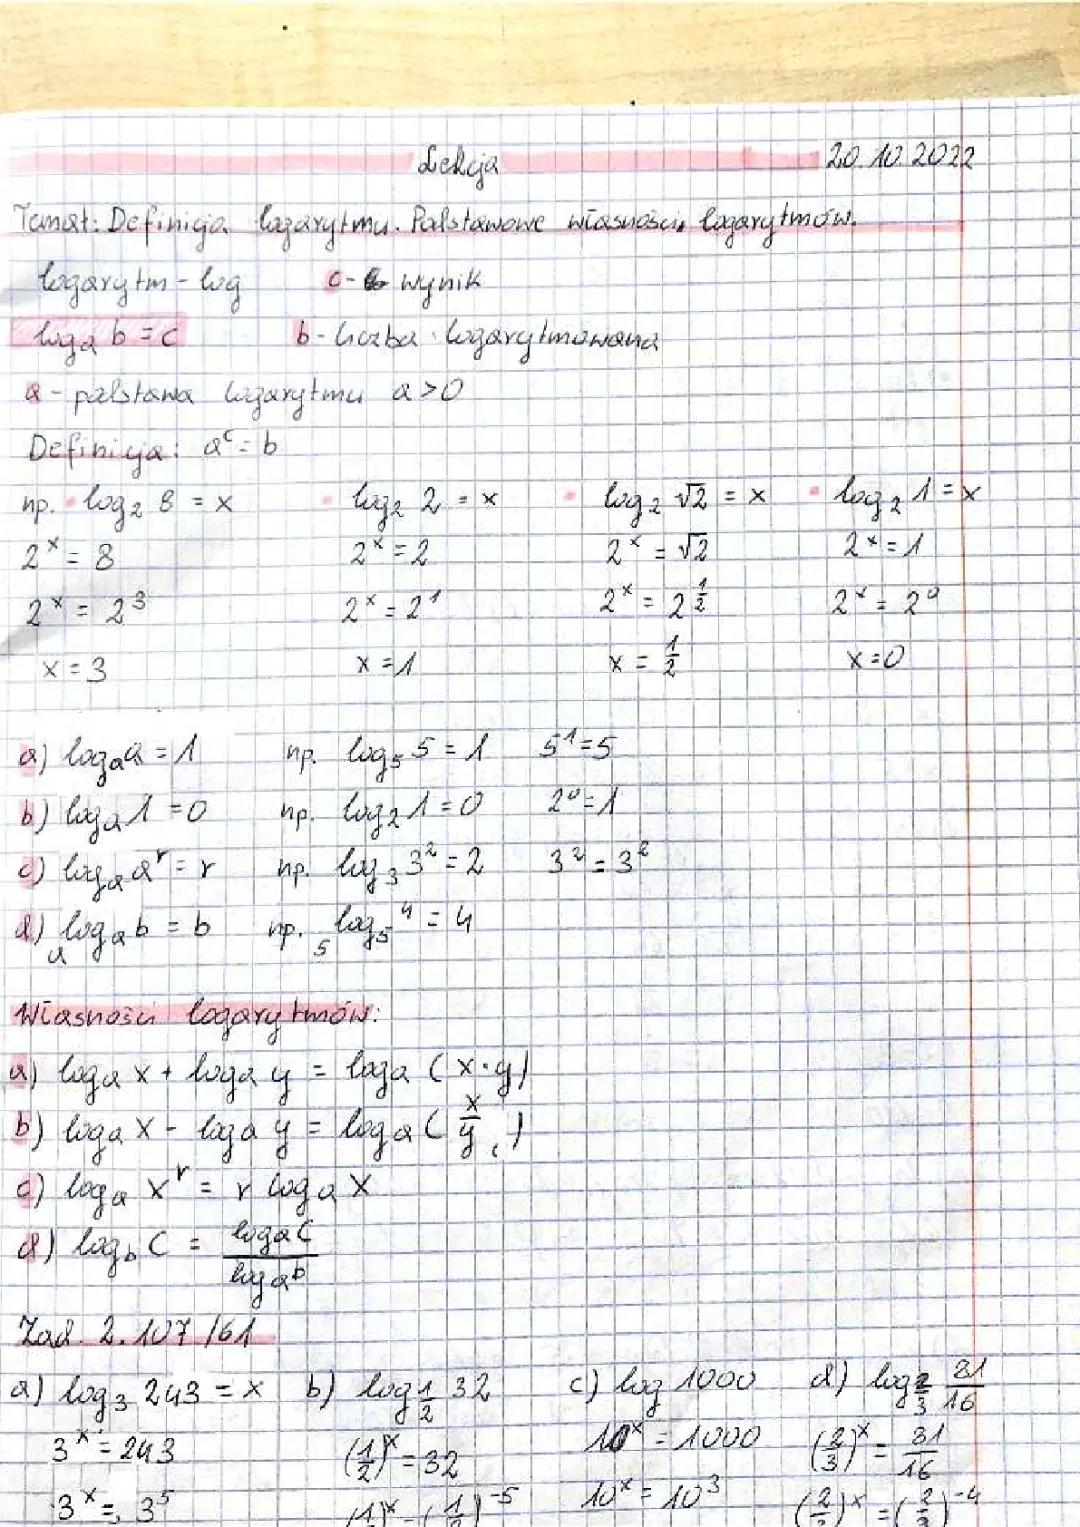 Lekcja 20.10.2022
Temat: Definicja logarytmu. Podstawowe własności logarytmów.
logarytm - log c - wynik
log_a b = c b - liczba logarytmowana
a - podstawa logarytmu a > 0
Definicja: a^c = b
np. • log_2 8 = x • log_2 2 = x • log_2 √2 = x • log_2 1 = x
2^x = 8 2^x = 2 2^x = √2 2^x = 1
2^x = 2^3 2^x = 2^1 2^x = 2^(1/2) 2^x = 2^0
x = 3 x = 1 x = 1/2 x = 0
a) log_a a = 1 np. log_5 5 = 1 5^1 = 5
b) log_a 1 = 0 np. log_2 1 = 0 2^0 = 1
c) log_a a^r = r np. log_3 3^2 = 2 3^2 = 3^2
d) a^(log_a b) = b np. 5^(log_5 4) = 4
Własności logarytmów:
a) log_a x + log_a y = log_a (x · y)
b) log_a x - log_a y = log_a (x/y)
c) log_a x^r = r log_a x
d) log_b c = log_a c / log_a b
Zad. 2.107/61
a) log_3 243 = x b) log_(1/2) 32 c) log 1000 d) log_(2/3) 81/16
3^x = 243 (1/2)^x = 32 10^x = 1000 (2/3)^x = 81/16
3^x = 3^5 (1/2)^x = (1/2)^-5 10^x = 10^3 (2/3)^x = (2/3)^-4